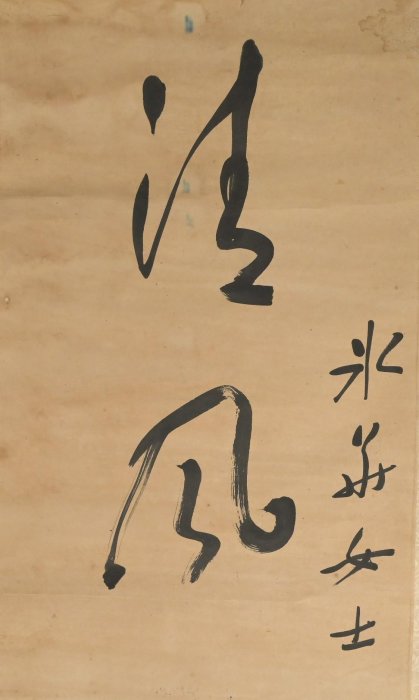 冰華女士
清風